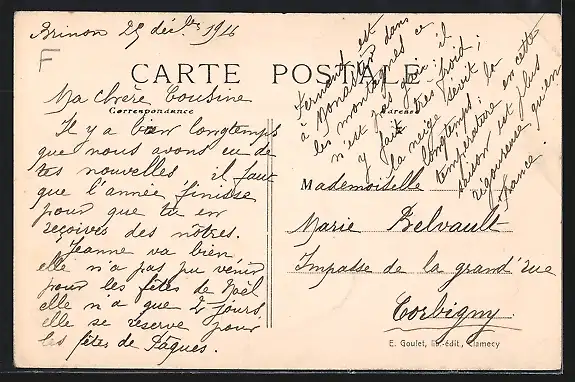 Brinon 29 déc.bre 1916
F
CARTE POSTALE
Correspondance
Adresse
Ma chère Cousine
Il y a bien longtemps
que nous avons eu de
tes nouvelles il faut
que l'année finisse
pour que tu en
reçoives des nôtres.
Jeanne va bien
elle n'a pas pu venir
pour les fêtes de Noël
elle n'a que 2 jours
elle se réserve pour
les fêtes de Pâques.
Fernand est
à Monastir dans
les montagnes ce
n'est pas gai; il
y fait très froid;
la neige sévit la
longtemps;
température en cette
saison est plus
rigoureuse qu'en
France.
Mademoiselle
Marie Delvault
Impasse de la grand'rue
Corbigny
E. Goulet, lib.-édit., Clamecy